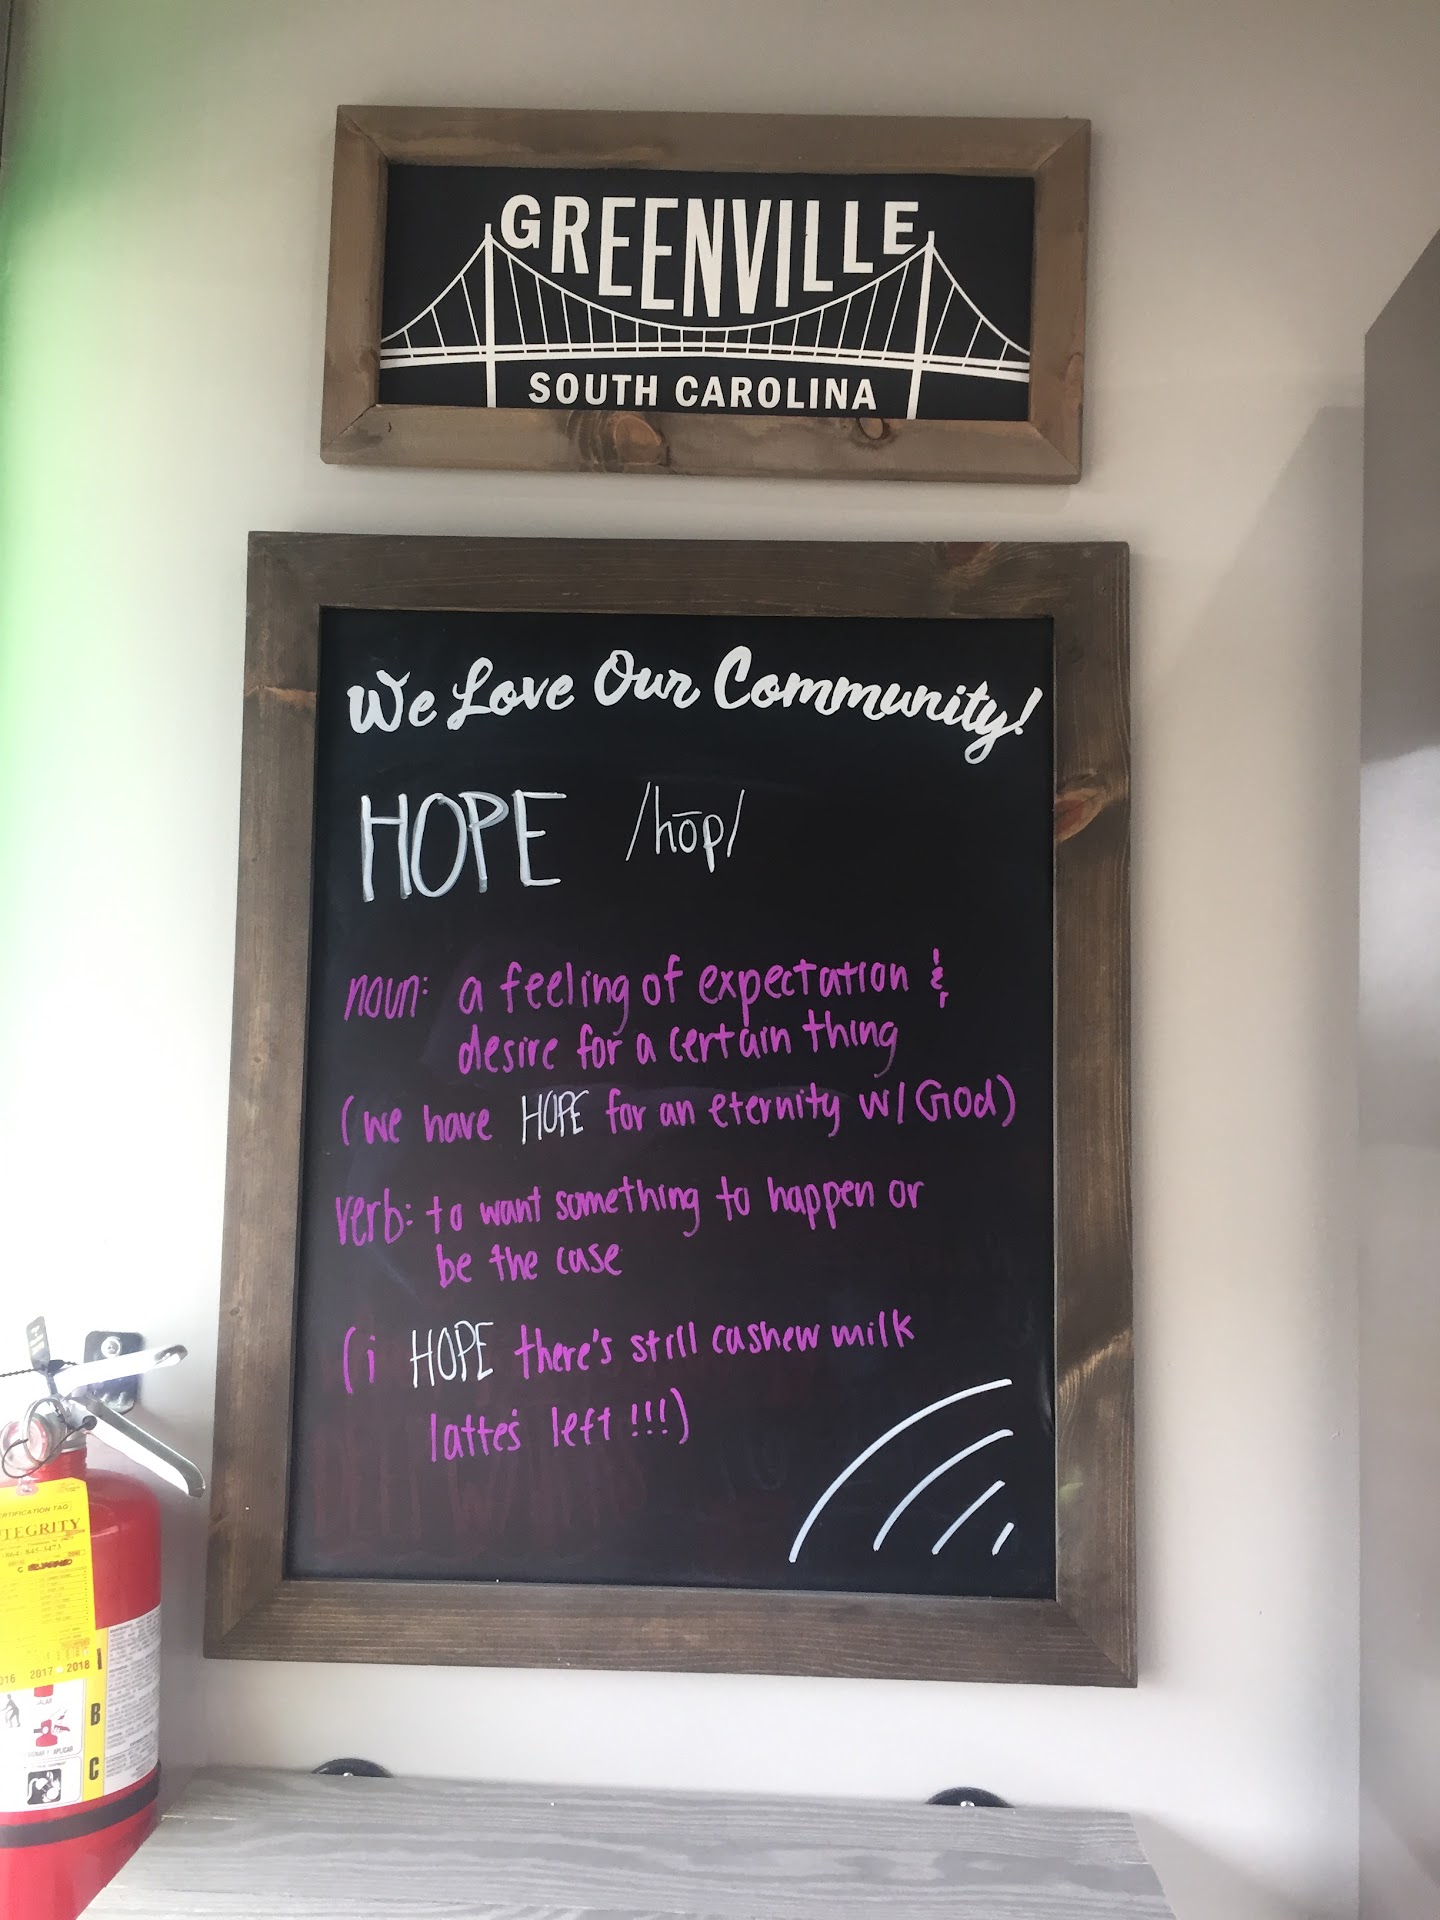 GREENVILLE
SOUTH CAROLINA
We Love Our Community!
HOPE /hōp/
noun: a feeling of expectation &
desire for a certain thing
(we have HOPE for an eternity w/ God)
verb: to want something to happen or
be the case
(i HOPE there's still cashew milk
latte's left !!!)
CERTIFICATION TAG
INTEGRITY
864-845-3473
2017 2018
I
B
C